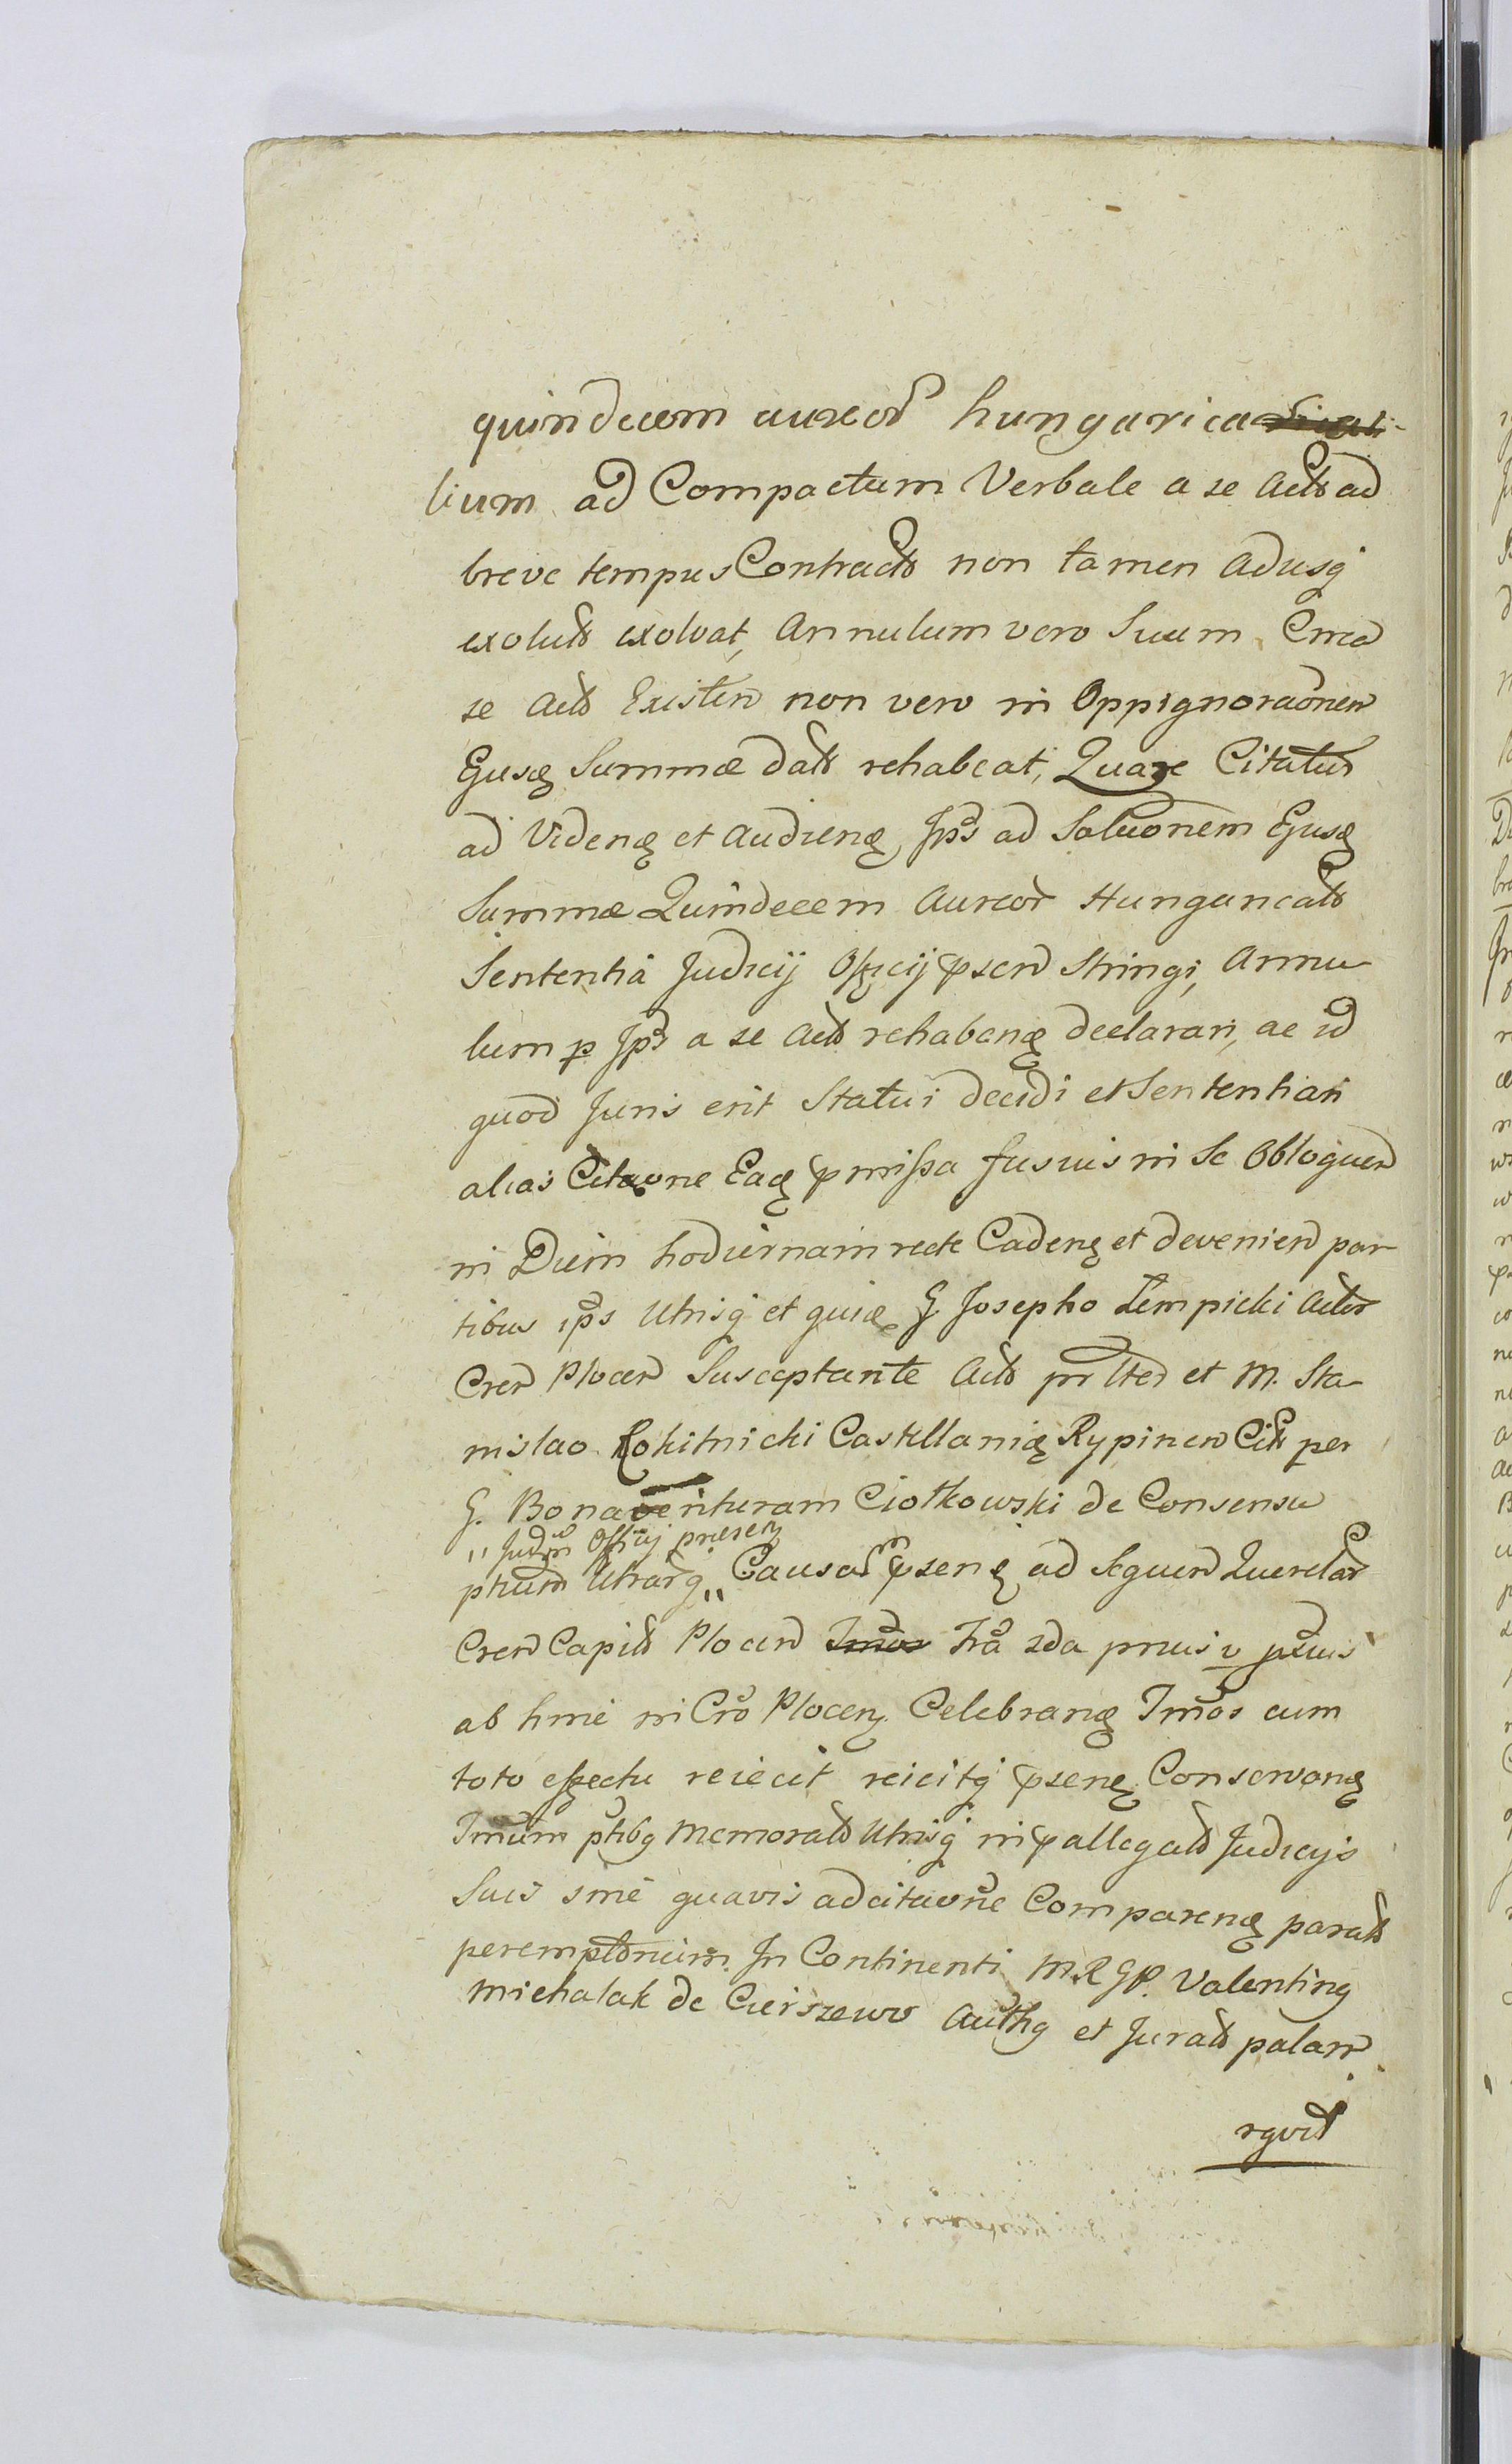 quindecem aureor̃ hungarica
lium ad Compactum Verbale a se Acto ad
breve tempus Contracto non tamen Adusq
exoluto exolvat, Annulum vero Suum Circa
se Acto Existen non vero in Oppignoraonen
Ejusq Summæ dato rehabeat, Quare Citatus
ad Videnq et Audienq, Jps ad Soluonem Ejusq
Summæ Quindecem Aureor Hungaricalo
Sententia Judicij Officij pseñ Stringi, Annu
lum p Jps a se Acto rehabenq declarari, ac id
quod Juris erit Statui decidi et Sententiari
alias Citaone Eaq pmissa fusius in Se Obloquen
in Diem hodiernam recte Cadenq et devenien par
tibus ips Utrisq et quiq G Josepho Lempicki Actor
Cren Plocen Susceptante Acto pr lted et M. Sta
nislao Rokitnicki Castellaniq Rypinen Cito per
G. Bonaventuram Ciotkowski de Consensu
,, Judm Officij præsenq
ptium Utrarq ,, Causam psenq ad Sequen Querelar
Cren Capito Plocen Tmos fra 2da prius v psuis
ab hinc in Cro Plocenq Celebranq Tmos cum
toto effectu reiecit reicitq psenq Conservanq
Tmum ptibq Memorato Utrisq in pallegato Judicijs
Suis sine quavis adcitaone Comparenq parato
peremptorium. In Continenti MRGP. Valentinq
Michalak de Cieiszewo Authq et Jurato palam
rgvit